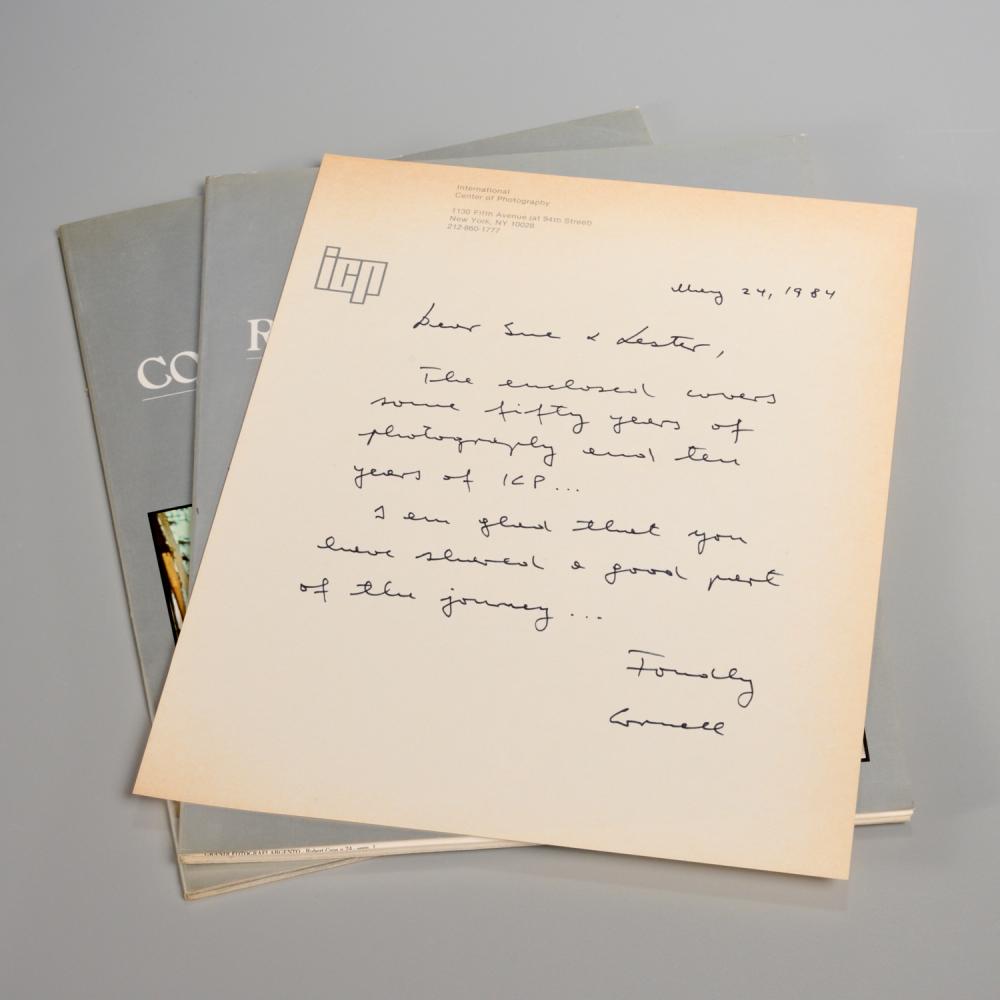 International
Center of Photography
1130 Fifth Avenue (at 94th Street)
New York, NY 10028
212-860-1777
icp
May 24, 1984
Dear Sue & Lester,
The enclosed covers
some fifty years of
photography and ten
years of ICP...
I am glad that you
have shared a good part
of the journey...
Fondly
Cornell
CO
R
GRANDI FOTOGRAFI ARGENTO - Robert Capa